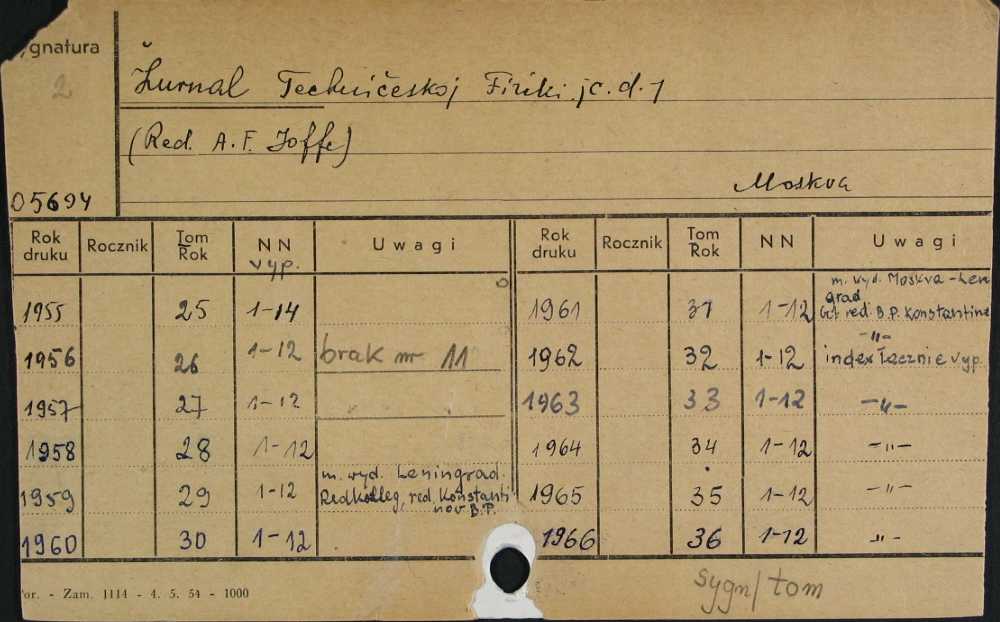 ygnatura
2
Žurnal Techničeskoj Fiziki. jc. d. 1
(Red. A. F. Joffe)
Moskva
05694
Rok druku Rocznik Tom Rok NN vyp. Uwagi Rok druku Rocznik Tom Rok NN Uwagi
1955 25 1-14 1961 31 1-12 m. wyd. Moskva - Len
grad
red. B.P. Konstantino
1956 26 1-12 brak nr 11 1962 32 1-12 -„-
index łącznie vyp.
1957 27 1-12 1963 33 1-12 -„-
1958 28 1-12 1964 34 1-12 -„-
1959 29 1-12 m. wyd. Leningrad.
Redkolleg, red. Konstanti
nov B.P. 1965 35 1-12 -„-
1960 30 1-12 1966 36 1-12 -„-
or. - Zam. 1114 - 4. 5. 54 - 1000
sygn/tom